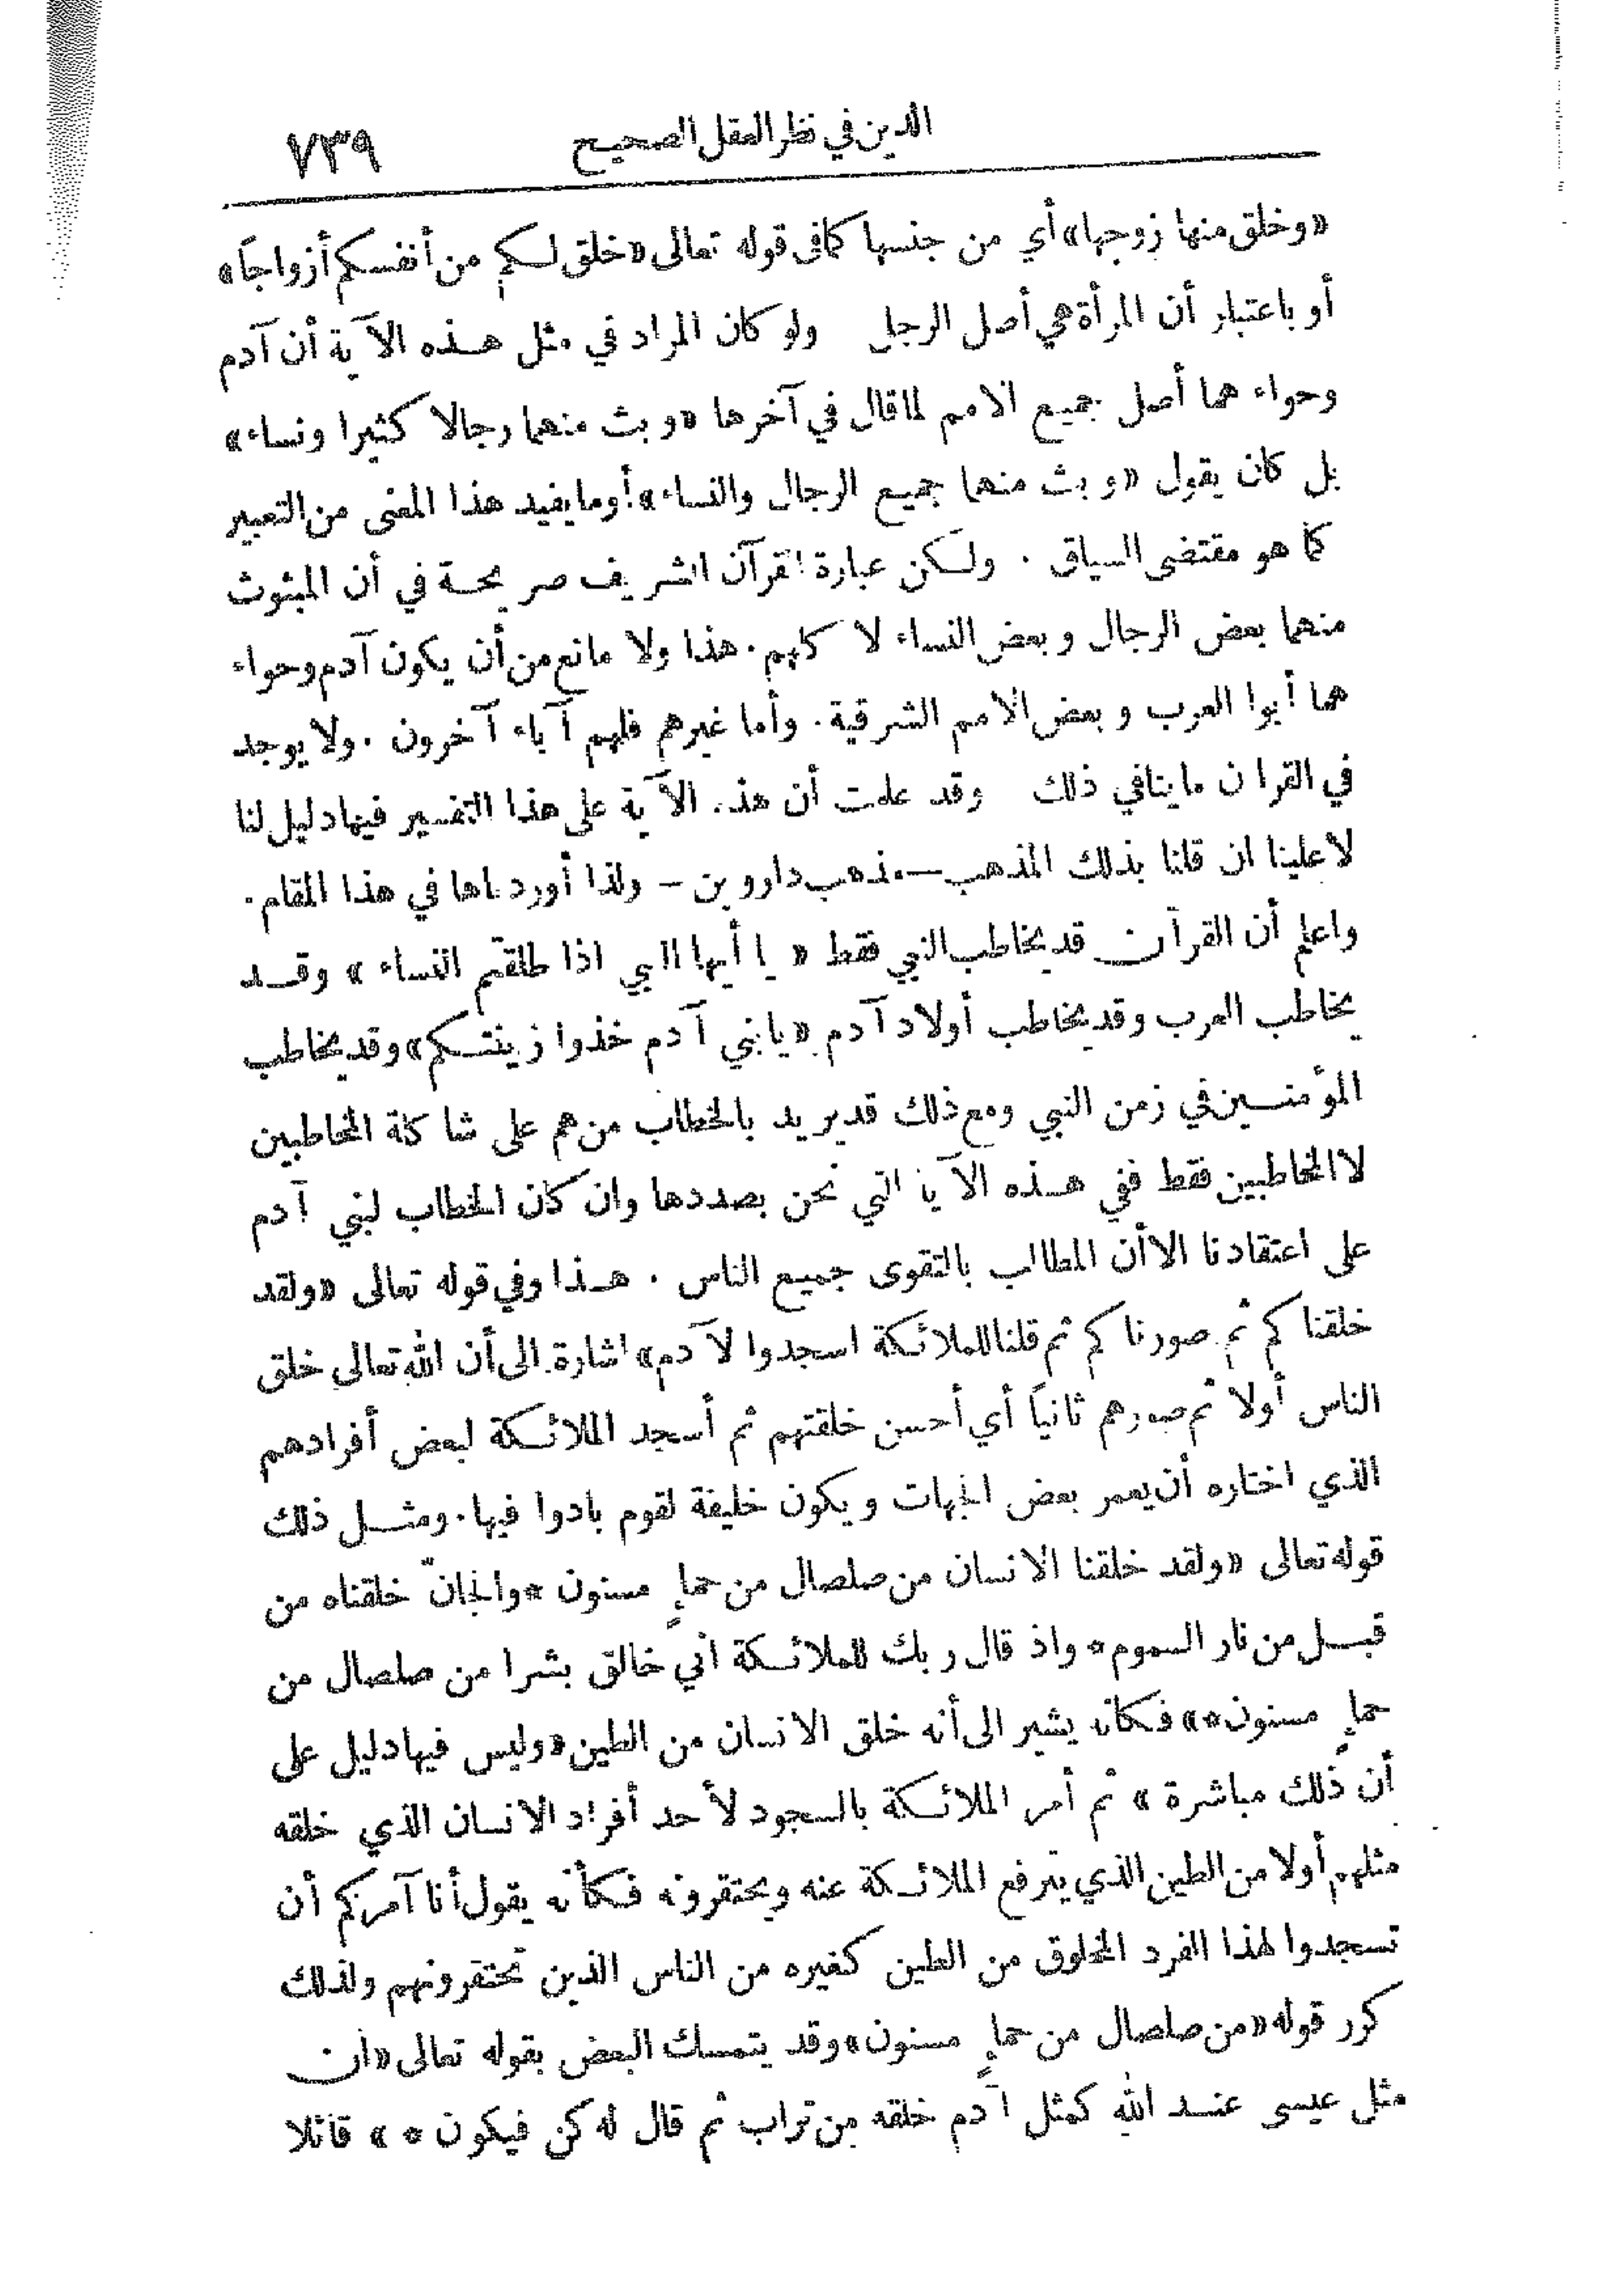 الدين في نظر العقل الصحيح ٧٣٩
«وخلق منها زوجها» أي من جنسها كما في قوله تعالى «خلق لكم من أنفسكم أزواجاً»
أو باعتبار أن المرأة هي أصل الرجل ولو كان المراد في مثل هذه الآية أن آدم
وحواء هما أصل جميع الامم لما قال في آخرها «وبث منهما رجالا كثيرا ونساء»
بل كان يقول «وبث منهما جميع الرجال والنساء»! وما يفيد هذا المعنى من التعبير
كما هو مقتضى السياق . ولكن عبارة القرآن الشريف صريحة في أن المبثوث
منهما بعض الرجال وبعض النساء لا كلهم . هذا ولا مانع من أن يكون آدم وحواء
هما أبوا العرب وبعض الامم الشرقية . وأما غيرهم فلهم آباء آخرون . ولا يوجد
في القرا ن ما ينافي ذلك وقد علمت أن هذه الآية على هذا التفسير فيها دليل لنا
لا علينا ان قلنا بذلك المذهب — مذهب داروين — ولذا أوردناها في هذا المقام .
واعلم أن القرآن قد يخاطب النبي فقط « يا أيها النبي اذا طلقتم النساء » وقد
يخاطب العرب وقد يخاطب أولاد آدم «يا بني آدم خذوا زينتكم» وقد يخاطب
المؤمنين في زمن النبي ومع ذلك قد يريد بالخطاب من هم على شاكلة المخاطبين
لا المخاطبين فقط ففي هذه الآيا التي نحن بصددها وان كان الخطاب لبني آدم
على اعتقادنا الا أن المطالب بالتقوى جميع الناس . هذا وفي قوله تعالى «ولقد
خلقناكم ثم صورناكم ثم قلنا للملائكة اسجدوا لآدم» اشارة الى أن الله تعالى خلق
الناس أولا ثم صورهم ثانياً أي أحسن خلقتهم ثم أسجد الملائكة لبعض أفرادهم
الذي اختاره أن يعمر بعض الجهات ويكون خليفة لقوم بادوا فيها . ومثل ذلك
قوله تعالى «ولقد خلقنا الانسان من صلصال من حمإٍ مسنون * والجانّ خلقناه من
قبل من نار السموم * واذ قال ربك للملائكة اني خالق بشرا من صلصال من
حمإٍ مسنون *» فكأنه يشير الى أنه خلق الانسان من الطين «وليس فيها دليل على
أن ذلك مباشرة» ثم أمر الملائكة بالسجود لأحد أفراد الانسان الذي خلقه
مثلهم أولا من الطين الذي يترفع الملائكة عنه ويحتقرونه فكأنه يقول أنا آمركم أن
تسجدوا لهذا الفرد المخلوق من الطين كغيره من الناس الذين تحتقرونهم ولذلك
كرر قوله «من صلصال من حمإٍ مسنون» وقد يتمسك البعض بقوله تعالى «ان
مثل عيسى عند الله كمثل آدم خلقه من تراب ثم قال له كن فيكون * » قائلا